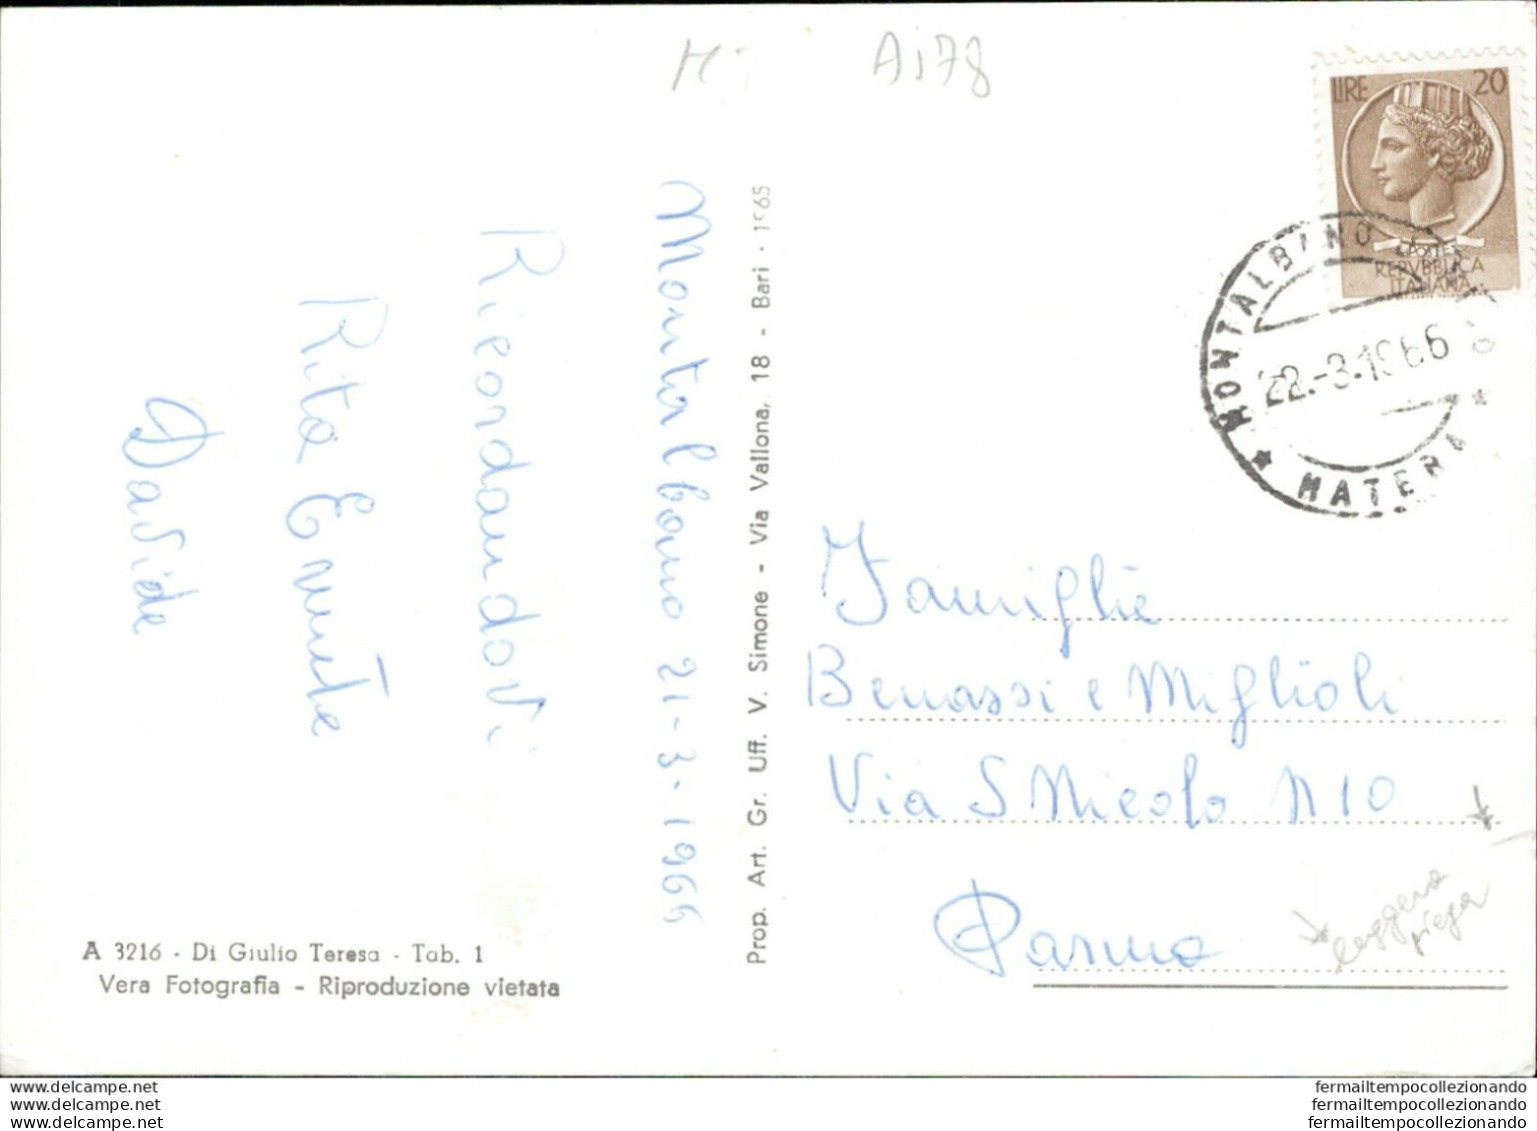 M
Ai78
LIRE 20
POSTE
REPVBBLICA
ITALIANA
MONTALBANO
22.-3.1966
MATERA
Montalbano 21-3-1966
Ricordandovi
Rita E
Davide
Prop. Art. Gr. Uff. V. Simone - Via Vallona, 18 - Bari - 1965
Famiglie
Benassi e Miglioli
Via S Nicolo N 10
Parma
leggera
piega
A 3216 - Di Giulio Teresa - Tab. 1
Vera Fotografia - Riproduzione vietata
www.delcampe.net
www.delcampe.net
www.delcampe.net
fermailtempocollezionando
fermailtempocollezionando
fermailtempocollezionando